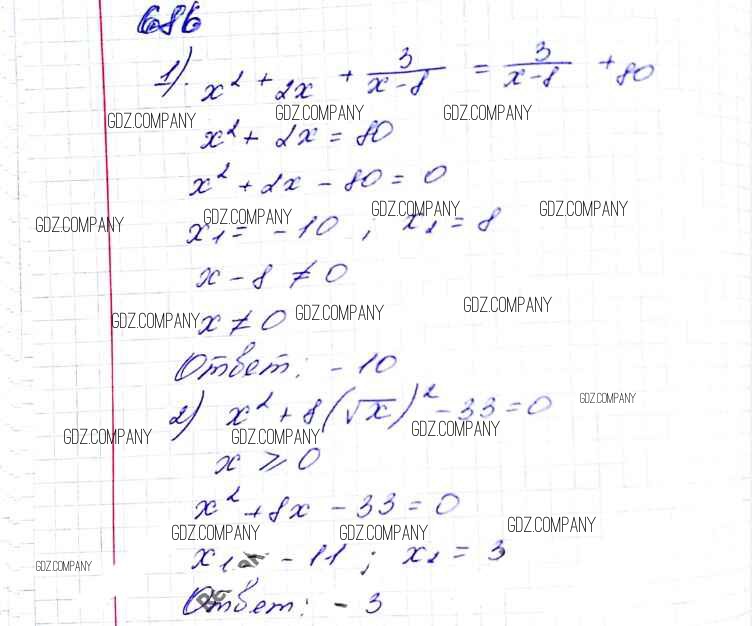 686
1). x² + 2x + 3/(x-8) = 3/(x-8) + 80
GDZ.COMPANY GDZ.COMPANY GDZ.COMPANY
x² + 2x = 80
x² + 2x - 80 = 0
GDZ.COMPANY GDZ.COMPANY GDZ.COMPANY GDZ.COMPANY
x₁ = -10 ; x₂ = 8
x - 8 ≠ 0
GDZ.COMPANY GDZ.COMPANY GDZ.COMPANY
x ≠ 0
Ответ: -10
2) x² + 8(√x)² - 33 = 0
GDZ.COMPANY
GDZ.COMPANY GDZ.COMPANY GDZ.COMPANY
x ⩾ 0
x² + 8x - 33 = 0
GDZ.COMPANY GDZ.COMPANY GDZ.COMPANY
x₁ = -11 ; x₂ = 3
GDZ.COMPANY
Ответ: - 3